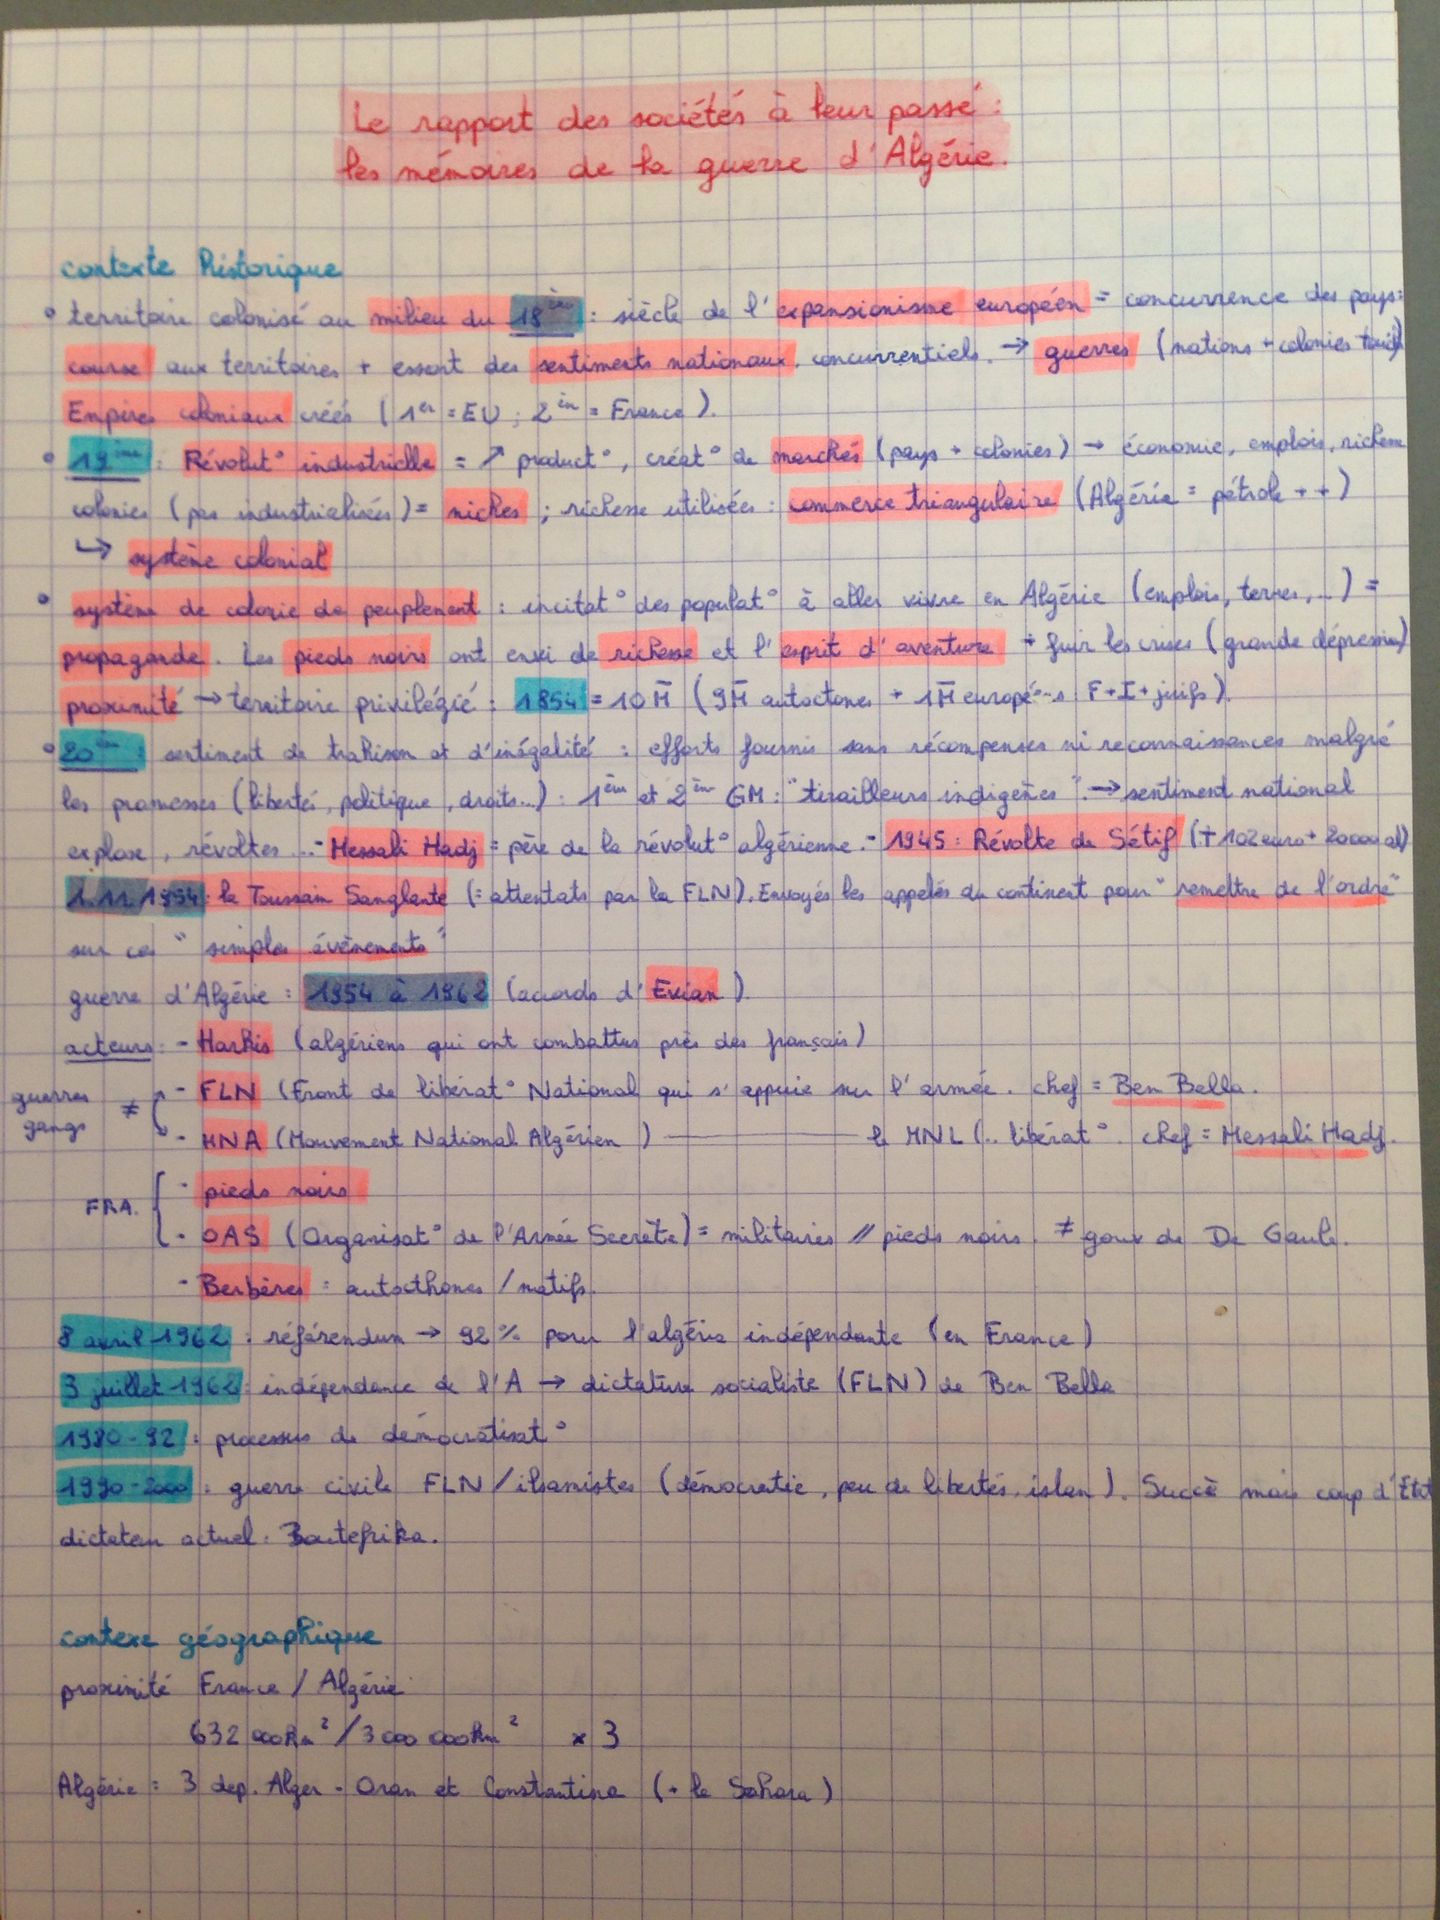 Le rapport des sociétés à leur passé :
les mémoires de la guerre d'Algérie.
contexte historique
• territoire colonisé au milieu du 18ème : siècle de l'expansionisme européen = concurrence des pays :
course aux territoires + essort des sentiments nationaux, concurrentiels. → guerres (nations + colonies
Empires coloniaux créés (1er = EU ; 2èm = France).
• 19ème : Révolut° industrielle = ↗ product°, créat° de marchés (pays + colonies) → économie, emplois, richesse
colonies (pas industrialisées) = niches ; richesse utilisées : commerce triangulaire (Algérie = pétrole ++)
↳ système colonial
• système de colonie de peuplement : incitat° des populat° à aller vivre en Algérie (emplois, terres, ...) =
propagande. Les pieds noirs ont envi de richesse et l'esprit d'aventure + fuir les crises (grande dépression)
proximité → territoire privilégié : 1854 = 10 M (9M autoctones + 1M europé...s F+I+juifs).
• 20èm : sentiment de trahison et d'inégalité : efforts fournis sans récompenses ni reconnaissances malgré
les promesses (liberté, politique, droits...) : 1èm et 2èm GM : "tirailleurs indigènes". → sentiment national
explose, révoltes ... - Messali Hadj = père de la révolut° algérienne. - 1945 : Révolte de Sétif († 102 euro + 20000 al)
1.11.1954 : la Toussain Sanglante (= attentats par la FLN). Envoyés les appelés du continent pour "remettre de l'ordre"
sur ces "simples évènements"
guerre d'Algérie : 1954 à 1962 (accords d'Evian).
acteurs : - Harkis (algériens qui ont combattus près des français)
guerres gangs ≠ - FLN (Front de libérat° National qui s'appuie sur l'armée. chef = Ben Bella.
- MNA (Mouvement National Algérien) ——— le MNL (.. libérat°. chef = Messali Hadj.
FRA. { - pieds noirs
- OAS (Organisat° de l'Armée Secrète) = militaires // pieds noirs. ≠ gouv de De Gaule.
- Berbères = autochtones / natifs.
8 avril 1962 : référendum → 92% pour l'algérie indépendante (en France)
3 juillet 1962 : indépendance de l'A → dictature socialiste (FLN) de Ben Bella
1980-92 : processus de démocratisat°
1990-2000 : guerre civile FLN / ilsamistes (démocratie, peu de libertés, islam). Succè mais coup d'État
dictateur actuel : Boutefrika.
contexe géographique
proximité France / Algérie
632 000km² / 3 000 000km² × 3
Algérie = 3 dep. Alger - Oran et Constantine (+ le Sahara)